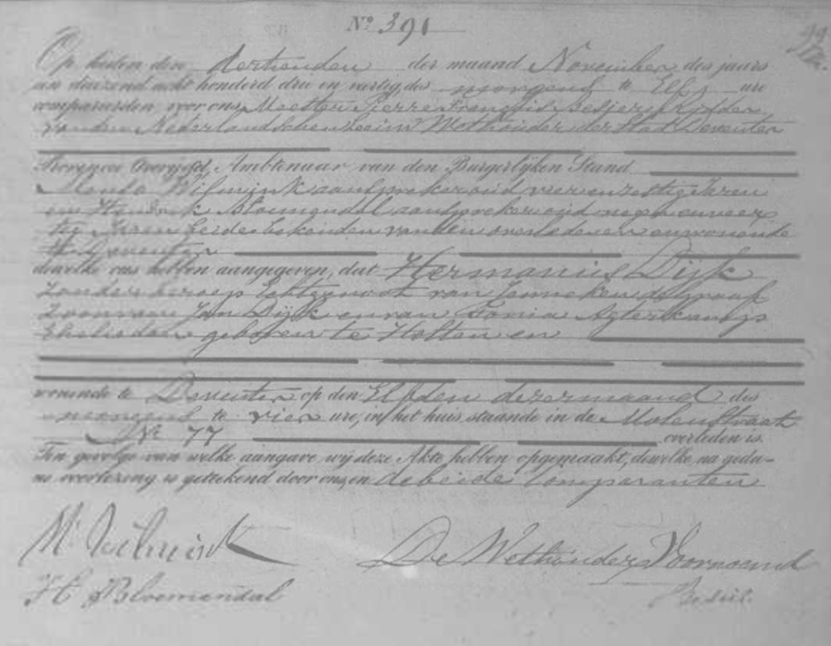 No 391
Op heden den dertienden der maand November des jaars
een duizend acht honderd drie en veertig, des morgens te Elf ure
compareerden voor ons, Meester Pierre François Ridder
van den Nederlandschen Leeuw Wethouder der Stad Deventer
Provincie Overijssel, Ambtenaar van den Burgerlijken Stand
Wilmink aanspreker oud vier en zestig Jaren
en Hendrik Bloemendal aanspreker oud negen en veer
tig Jaren beide bekenden van den overledene en wonende
te Deventer
dewelke ons hebben aangegeven, dat Hermanus Dijk
zonder beroep Echtgenoot van Janneken de Graaf
Zoon van Jan Dijk en van Tonia Agterkamp
Ehelieden geboren te Holten en
wonende te Deventer op den Elfden dezer maand des
morgens te vier ure, in het huis staande in de Molenstraat
No 77 overleden is.
Ten gevolge van welke aangave wij deze Akte hebben opgemaakt, dewelke na geda-
ne voorlezing is geteekend door ons, en de beide Comparanten
M. Wilmink De Wethouder Voornoemd
H Bloemendal